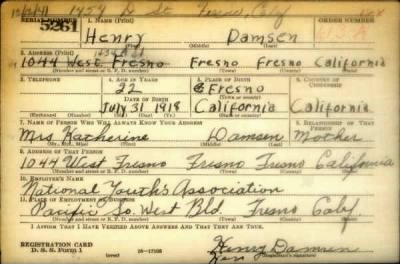 1454 D St. Fresno, Calif
SERIAL NUMBER 1. NAME (Print) ORDER NUMBER
5261 Henry Damsen
(First) (Middle) (Last)
2. ADDRESS (Print)
1044 West Fresno Fresno Fresno California
(Number and street or R. F. D. number) (Town) (County) (State)
3. TELEPHONE 4. AGE IN YEARS 5. PLACE OF BIRTH 6. COUNTRY OF CITIZENSHIP
22 Fresno
DATE OF BIRTH (Town or county)
July 31 1918 California California
(Exchange) (Number) (Mo.) (Day) (Yr.) (State or country)
7. NAME OF PERSON WHO WILL ALWAYS KNOW YOUR ADDRESS 8. RELATIONSHIP OF THAT PERSON
Mrs. Katherine Damsen Mother
(Mr., Mrs., Miss) (First) (Middle) (Last)
9. ADDRESS OF THAT PERSON
1044 West Fresno Fresno Fresno California
(Number and street or R. F. D. number) (Town) (County) (State)
10. EMPLOYER'S NAME
National Youth's Association
11. PLACE OF EMPLOYMENT OR BUSINESS
Pacific So. West Bld. Fresno Calif
(Number and street or R. F. D. number) (Town) (County) (State)
I AFFIRM THAT I HAVE VERIFIED ABOVE ANSWERS AND THAT THEY ARE TRUE.
REGISTRATION CARD
D. S. S. Form 1 (over) 16-17105
Henry Damsen
(Registrant's signature)